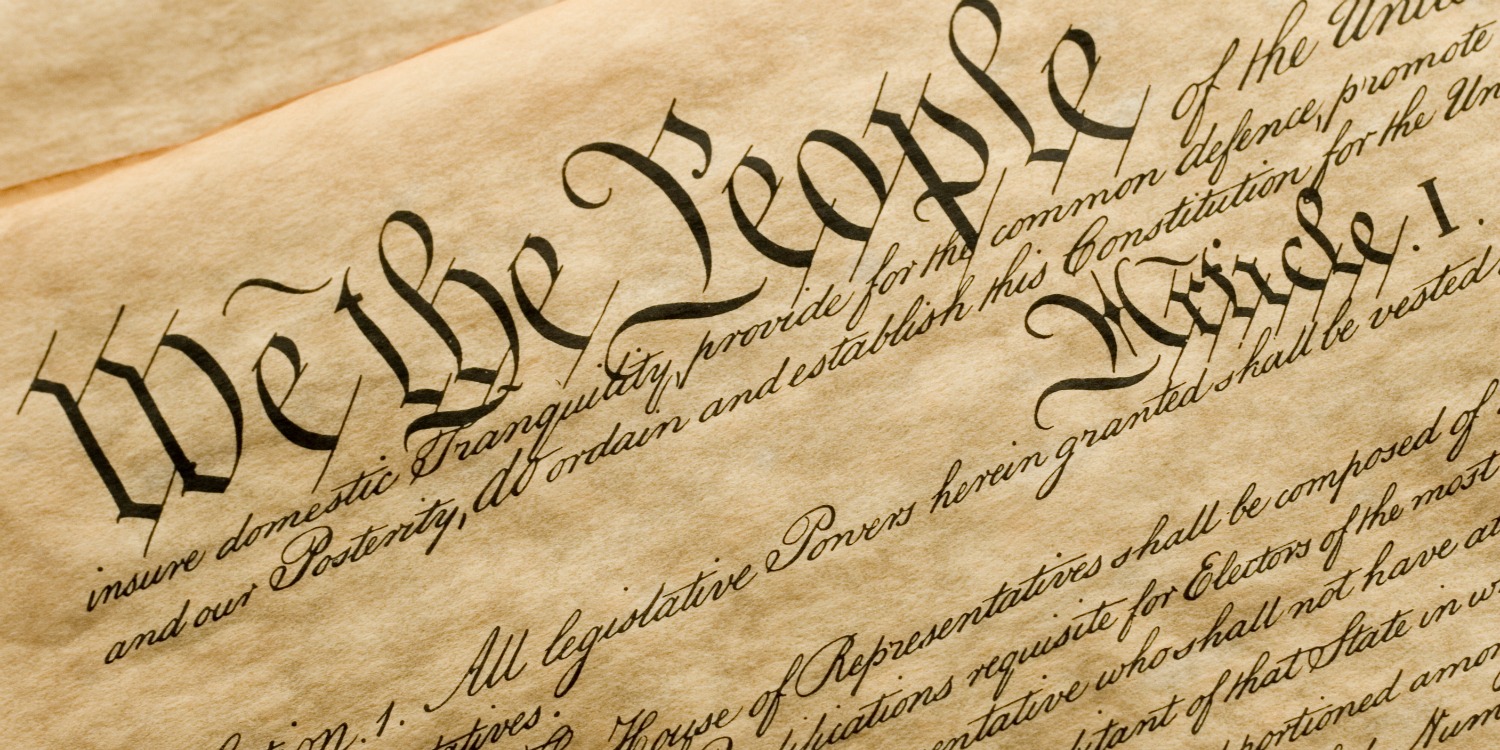 We the People of the Unit
insure domestic Tranquility, provide for the common defence, promote
and our Posterity, do ordain and establish this Constitution for the Un
Article. I.
tion. 1. All legislative Powers herein granted shall be vested
tatives.
House of Representatives shall be composed of
ifications requisite for Electors of the most
entative who shall not have at
bitant of that State in w
portioned amon
Num